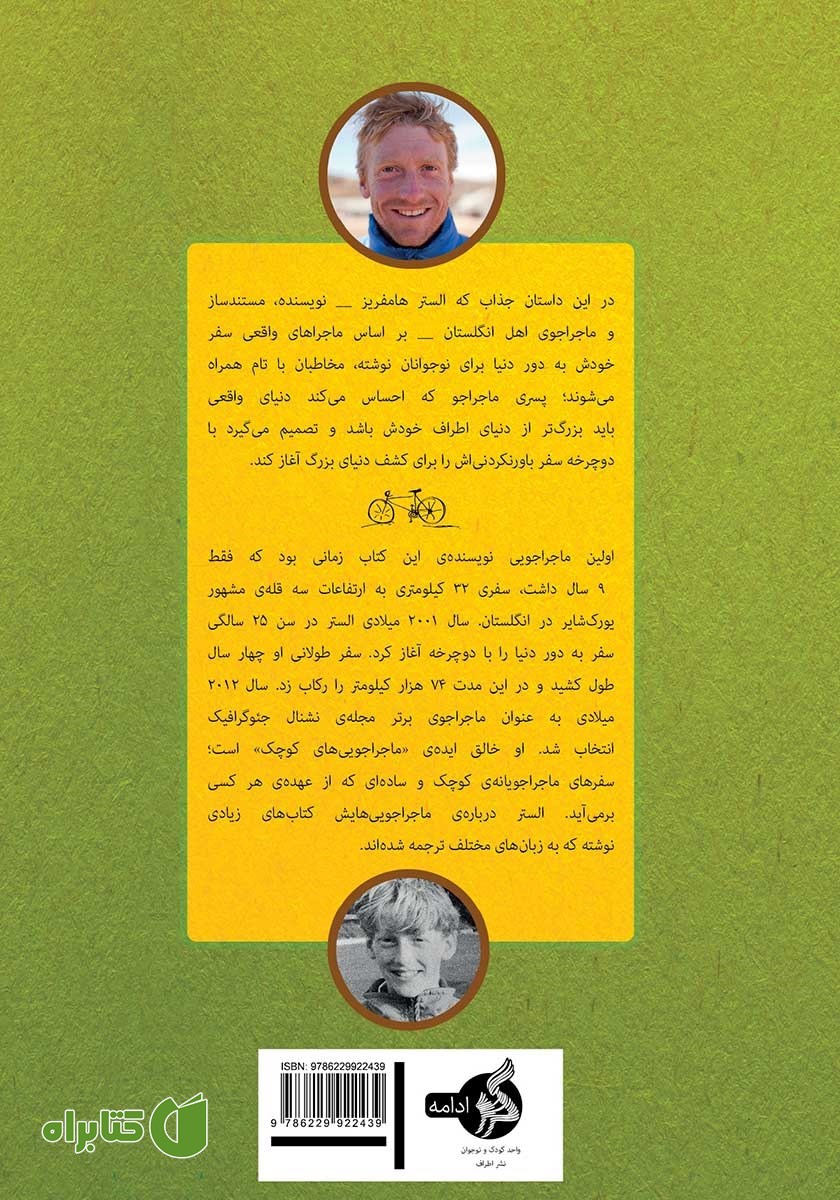 در این داستان جذاب که الستر هامفریز __ نویسنده، مستندساز
و ماجراجوی اهل انگلستان __ بر اساس ماجراهای واقعی سفر
خودش به دور دنیا برای نوجوانان نوشته، مخاطبان با تام همراه
می‌شوند؛ پسری ماجراجو که احساس می‌کند دنیای واقعی
باید بزرگ‌تر از دنیای اطراف خودش باشد و تصمیم می‌گیرد با
دوچرخه سفر باورنکردنی‌اش را برای کشف دنیای بزرگ آغاز کند.
اولین ماجراجویی نویسنده‌ی این کتاب زمانی بود که فقط
۹ سال داشت، سفری ۳۲ کیلومتری به ارتفاعات سه قله‌ی مشهور
یورک‌شایر در انگلستان. سال ۲۰۰۱ میلادی الستر در سن ۲۵ سالگی
سفر به دور دنیا را با دوچرخه آغاز کرد. سفر طولانی او چهار سال
طول کشید و در این مدت ۷۴ هزار کیلومتر را رکاب زد. سال ۲۰۱۲
میلادی به عنوان ماجراجوی برتر مجله‌ی نشنال جئوگرافیک
انتخاب شد. او خالق ایده‌ی «ماجراجویی‌های کوچک» است؛
سفرهای ماجراجویانه‌ی کوچک و ساده‌ای که از عهده‌ی هر کسی
برمی‌آید. الستر درباره‌ی ماجراجویی‌هایش کتاب‌های زیادی
نوشته که به زبان‌های مختلف ترجمه شده‌اند.
ISBN: 9786229922439
9 786229 922439
ادامه
واحد کودک و نوجوان
نشر اطراف
کتابراه